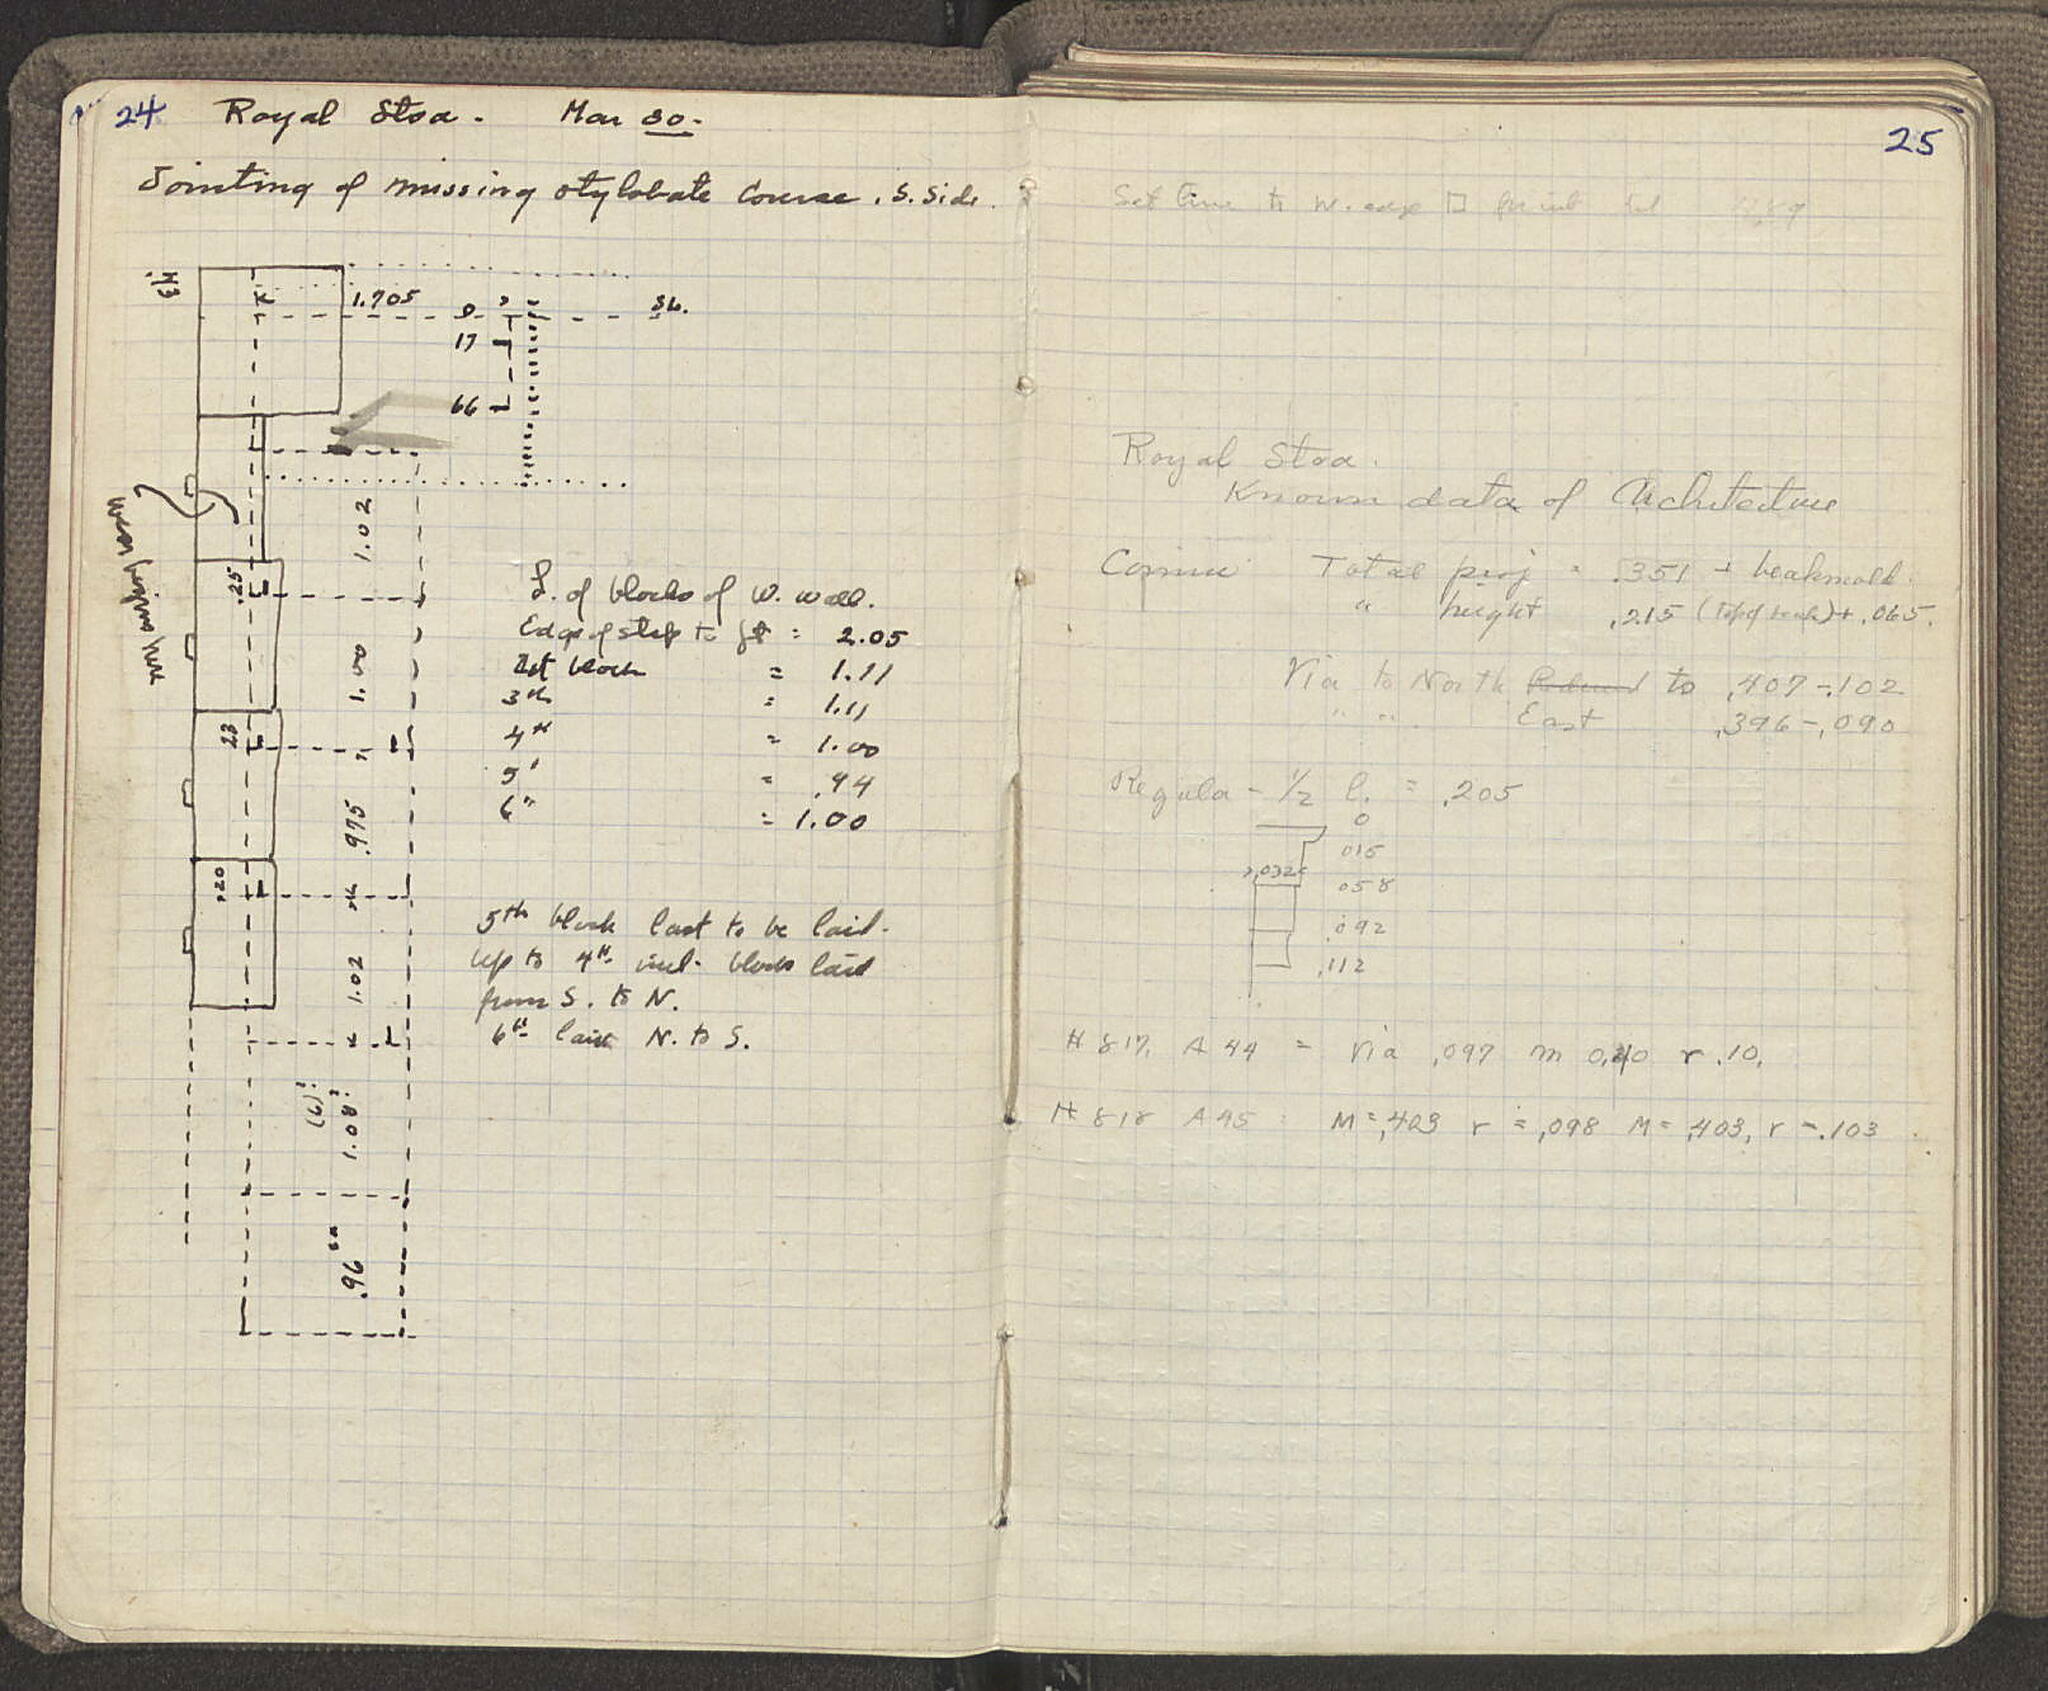 24 Royal Stoa. Mar 30.
Jointing of missing stylobate course. S. Side.
1.705
17
66
1.02
wear begins here
.25
1.00
23
.975
.20
1.02
(6)?
1.08?
.96
L. of blocks of W. wall.
Edge of step to jt = 2.05
1st block = 1.11
3th = 1.11
4th = 1.00
5' = .94
6" = 1.00
5th block last to be laid.
up to 4th incl. blocks laid
from S. to N.
6th laid N. to S.
25
Set line to W. edge
Royal Stoa.
Known data of Architecture
Cornice Total proj = .351 + beakmold.
" height .215 (top of beak) + .065.
Via to North Reduced to .407-.102
" " East .396-.090
Regula - 1/2 l. = .205
0
.015
.032
.058
.092
.112
H 817, A 44 = Via .097 m 0.40 r .10.
H 818 A 45 : M = .403 r = .098 M = .403, r = .103